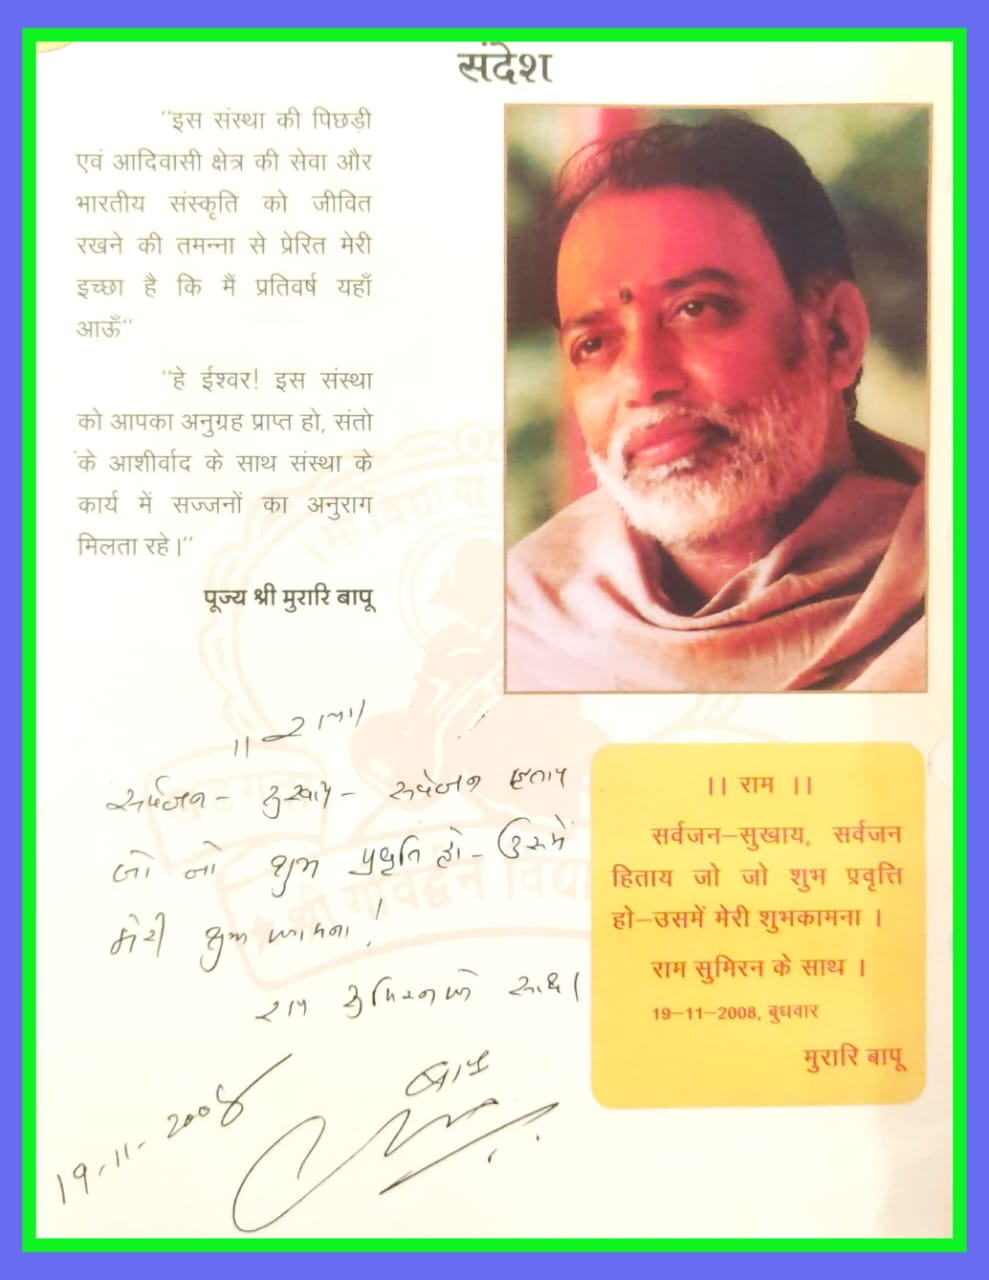 संदेश
"इस संस्था की पिछड़ी
एवं आदिवासी क्षेत्र की सेवा और
भारतीय संस्कृति को जीवित
रखने की तमन्ना से प्रेरित मेरी
इच्छा है कि मैं प्रतिवर्ष यहाँ
आऊँ"
"हे ईश्वर! इस संस्था
को आपका अनुग्रह प्राप्त हो, संतो
के आशीर्वाद के साथ संस्था के
कार्य में सज्जनों का अनुराग
मिलता रहे।"
पूज्य श्री मुरारि बापू
।। राम।
सर्वजन - सुखाय - सर्वजन हिताय
जो जो शुभ प्रवृत्ति हो - उसमें
मेरी शुभ कामना!
राम सुमिरन के साथ।
बापू
19-11-2008
।। राम ।।
सर्वजन-सुखाय, सर्वजन
हिताय जो जो शुभ प्रवृत्ति
हो-उसमें मेरी शुभकामना ।
राम सुमिरन के साथ ।
19-11-2008, बुधवार
मुरारि बापू
श्री गोवर्द्धन विद्या